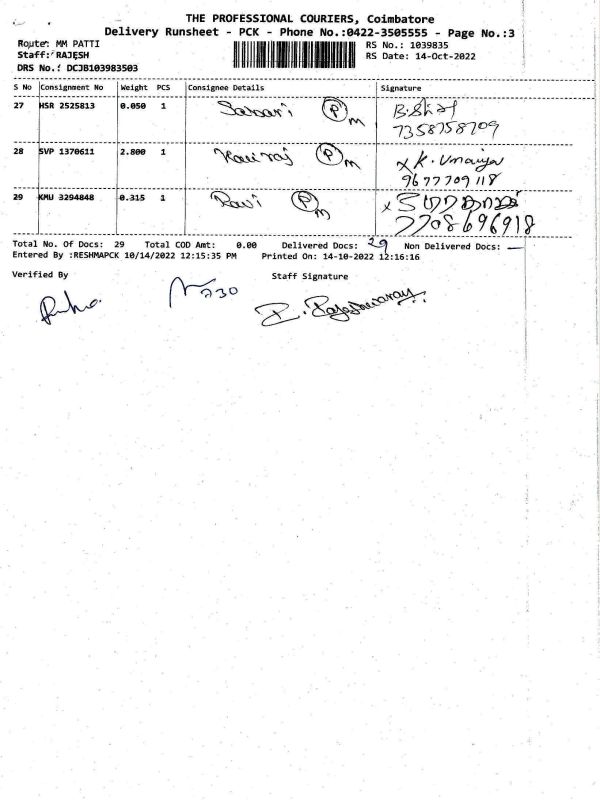 THE PROFESSIONAL COURIERS, Coimbatore
Delivery Runsheet - PCK - Phone No.:0422-3505555 - Page No.:3
Route: MM PATTI RS No.: 1039835
Staff: RAJESH RS Date: 14-Oct-2022
DRS No.: DCJB103983503
S No Consignment No Weight PCS Consignee Details Signature
27 HSR 2525813 0.050 1 P M
7358758709
28 SVP 1370611 2.800 1 P M x K. Umaiya
9677709118
29 KMU 3294848 0.315 1 Ravi P M x
7708696918
Total No. Of Docs: 29 Total COD Amt: 0.00 Delivered Docs: 29 Non Delivered Docs: —
Entered By :RESHMAPCK 10/14/2022 12:15:35 PM Printed On: 14-10-2022 12:16:16
Verified By Staff Signature
730